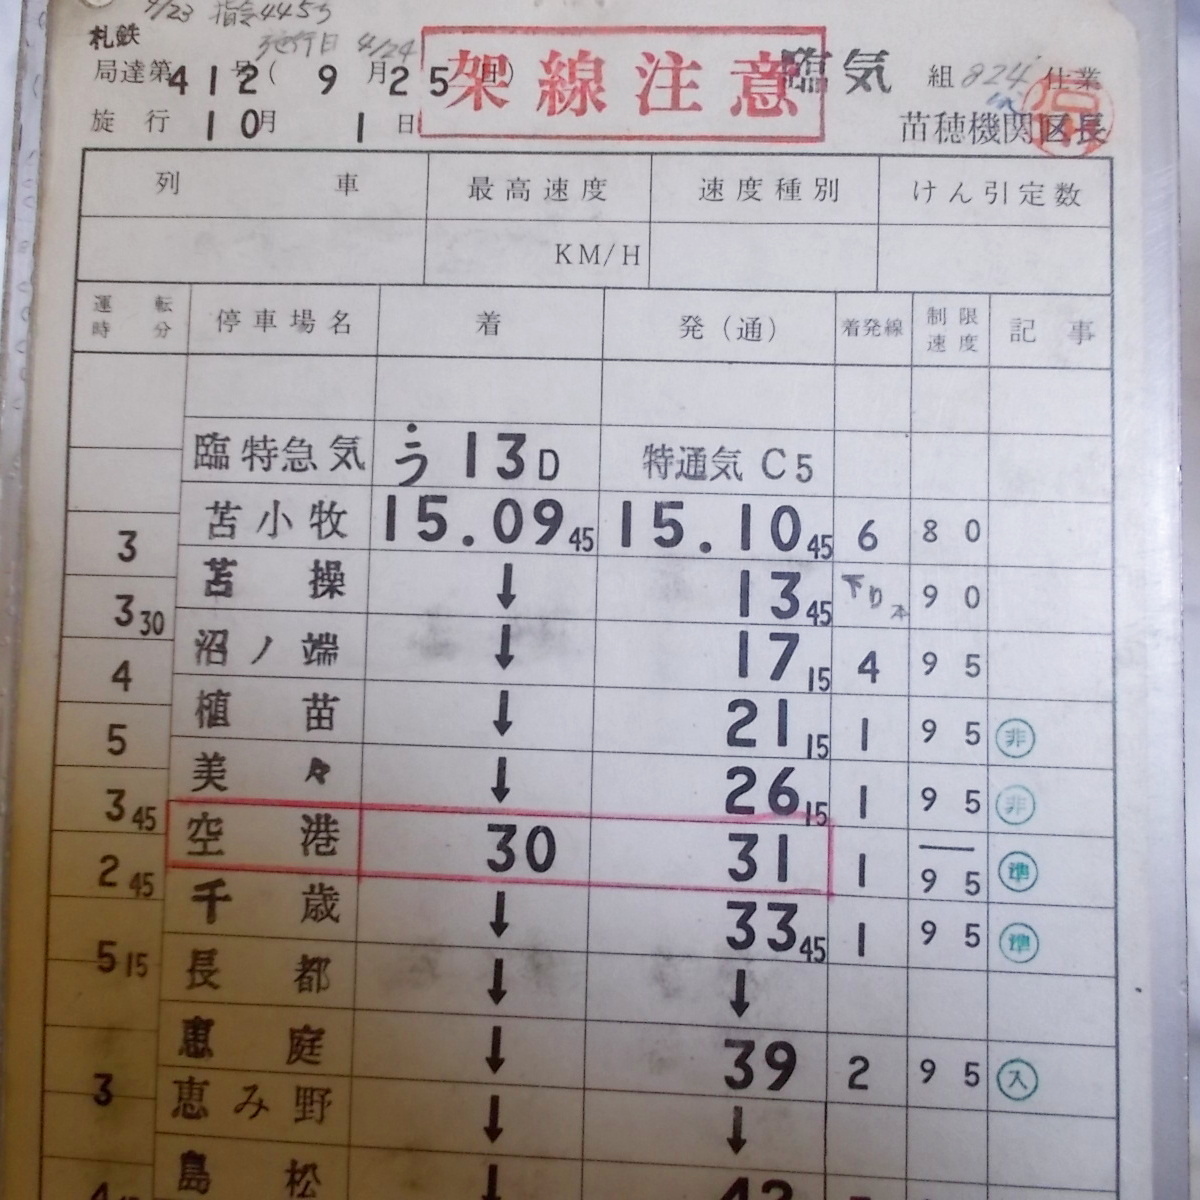 9/23 指令4455
施行日 4/24
札鉄
局達第412号(9月25日)
架線注意
臨気
組824仕業
施行 10月 1日
苗穂機関区長
列 車 最高速度 速度種別 けん引定数
KM/H
運転時分 停車場名 着 発(通) 着発線 制限速度 記事
臨特急気 う13D 特通気 C5
苫小牧 15.09 45 15.10 45 6 80
3
苫操 ↓ 13 45 下り本 90
3 30
沼ノ端 ↓ 17 15 4 95
4
植苗 ↓ 21 15 1 95 非
5
美々 ↓ 26 15 1 95 非
3 45
空港 30 31 1 95 準
2 45
千歳 ↓ 33 45 1 95 準
5 15
長都 ↓ ↓
恵庭 ↓ 39 2 95 入
3
恵み野 ↓ ↓
島松 ↓ 42